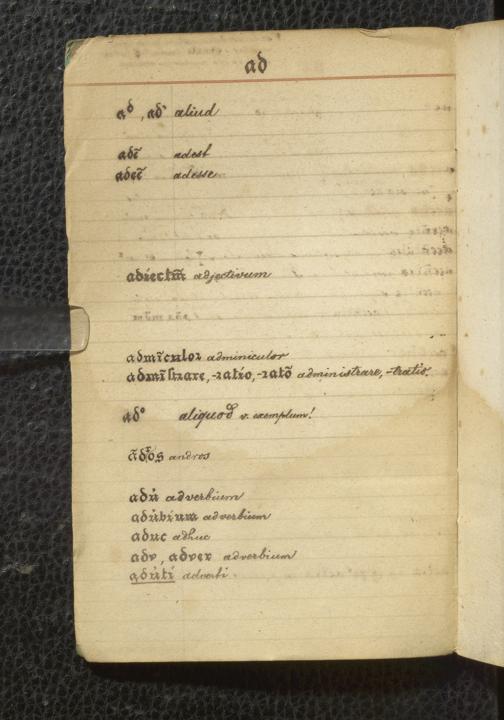 ad
aᵈ, ad' aliud
adē̄ adest
adeē̄ adesse
adiectīn̄ adjectivum
admīculor adminiculor
admīstrare, -ratio, -ratō administrare, -tratio.
adᵒ aliquod v. exemplum!
ādʳos andros
adů adverbium
adůbium adverbium
aduc adhuc
adv, adver adverbium
adůti adverti